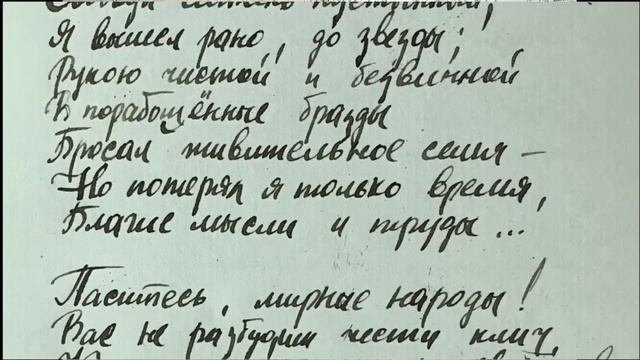 Свободы сеятель пустынный,
Я вышел рано, до звезды;
Рукою чистой и безвинной
В порабощённые бразды
Бросал живительное семя –
Но потерял я только время,
Благие мысли и труды...
Паситесь, мирные народы!
Вас не разбудит чести клич,